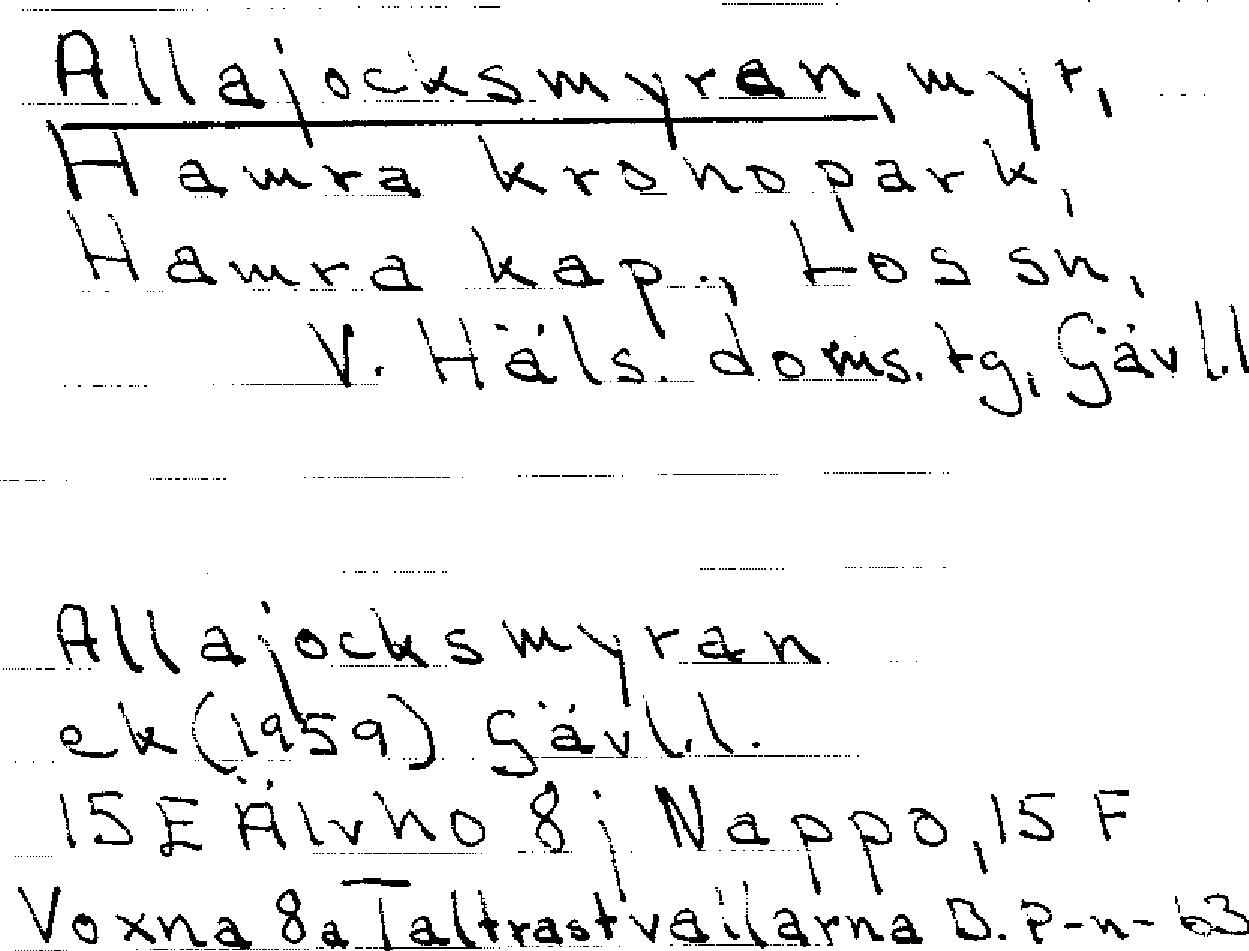 Allajocksmyran, myr,
Hamra kronopark,
Hamra kap., Los sn,
V. Häls. doms. tg, Gävl.l
Allajocksmyran
ek (1959) Gävl.l.
15 E Älvho 8 j Nappo, 15 F
Voxna 8a Taltrastvallarna B. P-n- 63